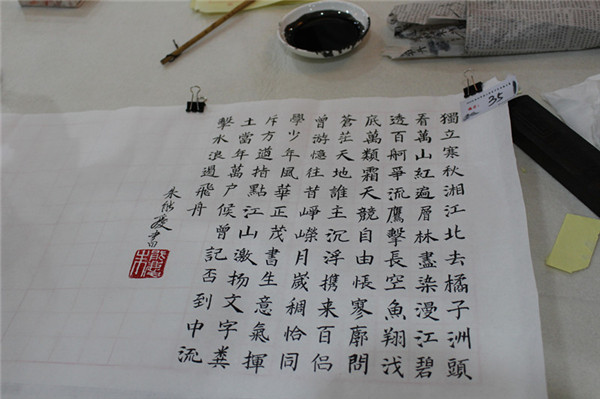 獨立寒秋湘江北去橘子洲頭
看萬山紅遍層林盡染漫江碧
透百舸爭流鷹擊長空魚翔浅
底萬類霜天競自由悵寥廓問
蒼茫天地誰主沉浮携来百侣
曾游憶往昔崢嶸月歲稠恰同
學少年風華正茂書生意氣揮
斥方遒指點江山激扬文字糞
土當年萬户侯曾記否到中流
擊水浪遏飛舟
35